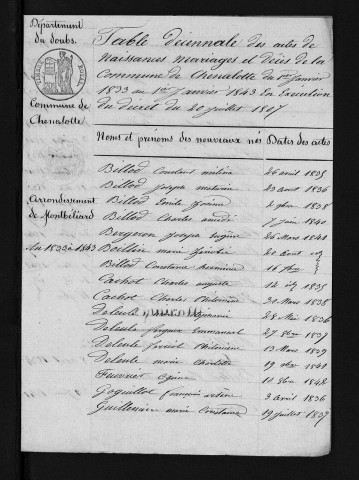 Département
du doubs.
Commune de
Chenalotte
Arrondissement
de Montbéliard
An 1833 à 1843
Table décennale des actes de
Naissances mariages et décès de la
Commune de Chenalotte du 1er Janvier
1833 au 1er Janvier 1843 En Exécution
du décret du 20 juillet 1807
Noms et prénoms des nouveaux nés Dates des actes
Billod Constant 26 avril 1835
Billod Joseph 23 aout 1836
Billod Emile 2 9bre 1838
Billod Charles amédé 7 juin 1840
Bergeron Joseph Eugène 26 Mars 1841
marie 20 aout
Billod Constance herminie 16 7bre
Cachot Charles auguste 14 1835
Cachot Charles 30 Mars 1838
Deleule 28 Mai 1836
Deleule Jacques Emmanuel 27 8bre 1837
Deleule 13 Mars 1839
Deleule marie Charlotte 19 9bre 1841
10 8bre 1842
Goguillot François 3 avril 1836
marie Constance 19 juillet 1837